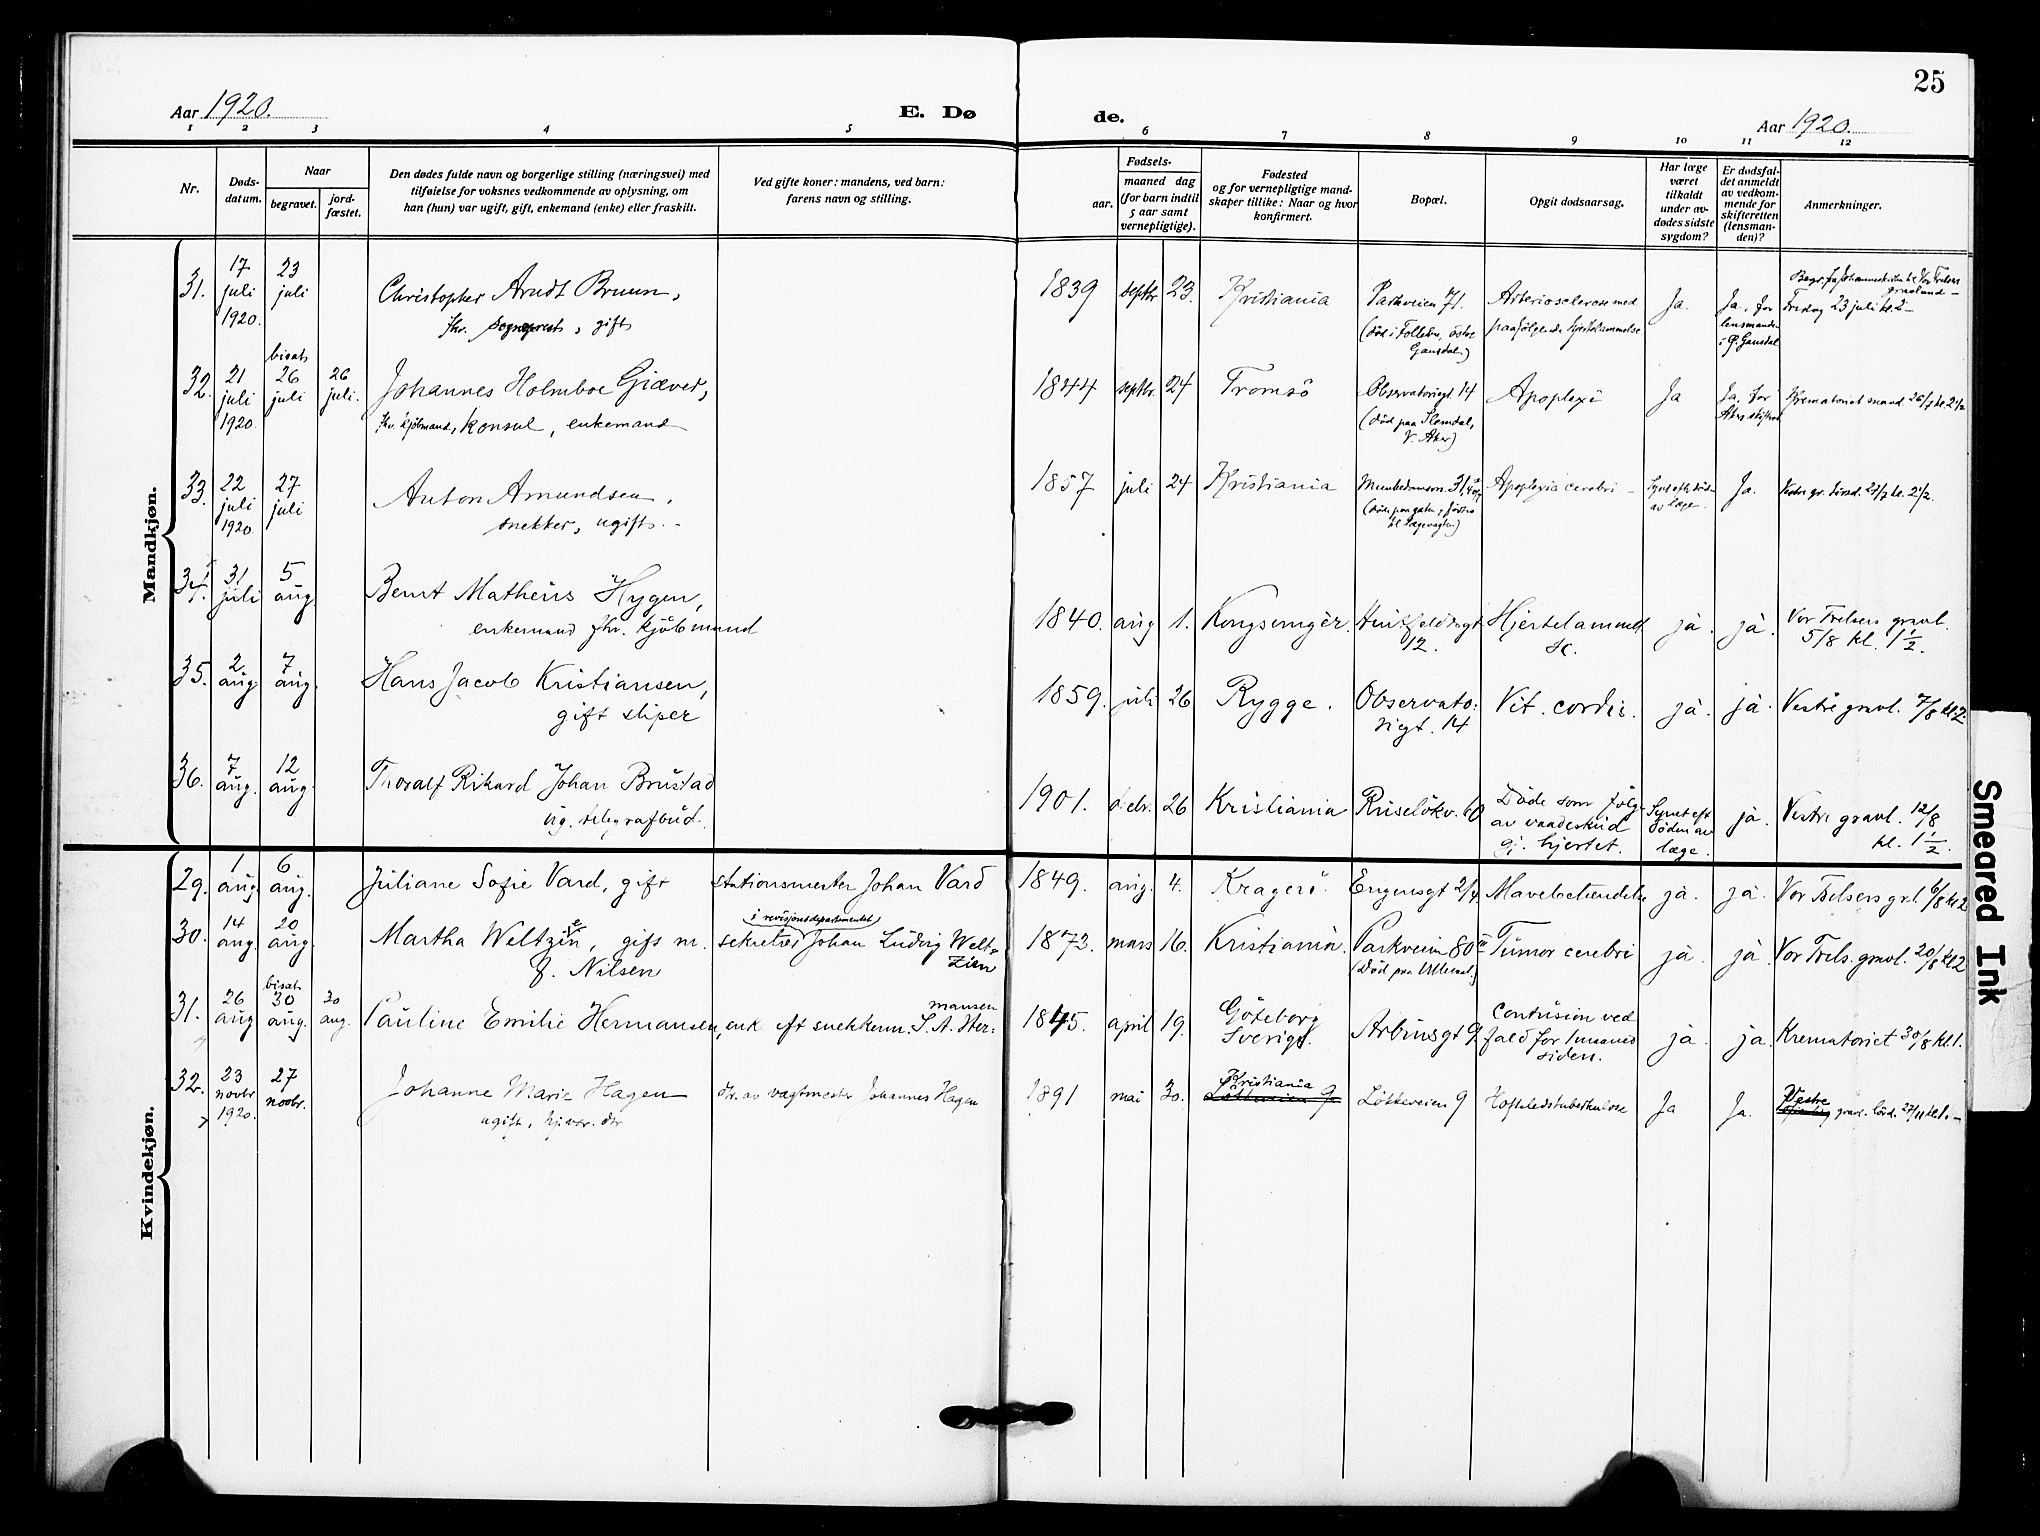 25
Aar 1920.
E. Dø
de.
Aar 1920.
1 2 3 4 5 6 7 8 9 10 11 12
Nr.
Døds-
datum.
Naar
begravet.
jord-
fæstet.
Den dødes fulde navn og borgerlige stilling (næringsvei) med
tilføielse for voksnes vedkommende av oplysning, om
han (hun) var ugift, gift, enkemand (enke) eller fraskilt.
Ved gifte koner: mandens, ved barn:
farens navn og stilling.
Fødsels-
aar.
maaned dag
(for barn indtil
5 aar samt
vernepligtige).
Fødested
og for vernepligtige mand-
skaper tillike: Naar og hvor
konfirmert.
Bopæl.
Opgit dødsaarsag.
Har læge
været
tilkaldt
under av-
dødes sidste
sygdom?
Er dødsfal-
det anmeldt
av vedkom-
mende for
skifteretten
(lensman-
den)?
Anmerkninger.
Mandkjøn.
31.
17
juli
1920.
23
juli
Christopher Arndt Bruun,
fhv. sogneprest, gift
1839 septbr 23. Kristiania
Parkveien 71.
(død i Follebu, östre
Gausdal)
Arteriosclerose med
paafölgende hjertelammelse
Ja.
Ja, for
lensmanden
i Ö. Gausdal
Begr. fra Johanneskirken til Vor Frelsers
gravlund –
Fredag 23 juli kl. 2 –
32.
21
juli
1920.
bisat
26
juli
26
juli.
Johannes Holmboe Giæver,
fhv. kjöbmand, konsul, enkemand
1844 septbr. 24 Tromsö
Observatoriegt. 14
(död paa Slemdal,
V. Aker)
Apoplexi
Ja
Ja, for
Akers skifteret
Krematoriet mand. 26/7 kl. 2 1/2
33.
22
juli
1920.
27
juli
Anton Amundsen,
snekker, ugift. –
1857 juli 24 Kristiania
Munkedamsvn. 31,
(död paa gaten,
til lægevagten)
Apoplexia cerebri –
Synet efter död
av læge.
Ja.
Vestre gr. tirsd. 27/7 kl. 2 1/2.
34.
31
juli
5
aug.
Bernt Matheus Hygen,
enkemand fhv. kjöbmand
1840. aug 1. Kongsvinger.
Huitfeldtsgt
12.
Hjertelammelse
ja. ja.
Vor Frelsers gravl.
5/8 kl. 1 1/2.
35.
2
aug.
7
aug.
Hans Jacob Kristiansen,
gift sliper
1859. juli 26 Rygge.
Observato-
riegt. 14
Vit. cordis.
ja. ja.
Vestre gravl. 7/8 kl 2.
36.
7
aug.
12
aug.
Thoralf Rikard Johan Brustad
ug. telegrafbud.
1901. debr. 26 Kristiania
Ruselökv. 60
Döde som fölge
av vaadeskud
gj. hjertet.
Synet eft
döden av
læge.
ja.
Vestre gravl. 12/8
kl. 1 1/2.
Kvindekjøn.
29.
1
aug
6
aug.
Juliane Sofie Vard, gift
stationsmester Johan Vard
1849. aug. 4. Kragerö.
Mavebetændelse
ja. ja.
Vor Frelsers grl. 6/8 kl 2
30.
14
aug.
20
aug.
Martha Weltzien, gift m.
f. Nilsen
i revisjonsdepartementet
sekretær Johan Ludvig Welt-
zien
1873. mars 16. Kristiania.
Parkveien 80 II
(Död paa Ullevaal.)
Tumor cerebri
ja ja.
Vor Frels. gravl. 20/8 kl 2
31.
26
aug
bisat
30
aug.
30
aug.
Pauline Emilie Hermansen,
enk eft snekkerm. S. A. Her-
mansen
1845. april 19.
Göteborg
Sverige.
Arbinsgt 9
Contusion ved
fald for 1 maaned
siden.
ja ja.
Krematoriet 30/8 kl 1.
32.
23
novbr
1920.
27
novbr.
Johanne Marie Hagen
ugift, hjvær. dtr
dtr. av vagtmester Johannes Hagen
1891 mai 30.
Kristiania
Lökkeveien 9
Lökkeveien 9
Hofteledstuberkulose
Ja Ja.
Vestre
gravl. lörd. 27/11 kl. 1. –
Smeared Ink